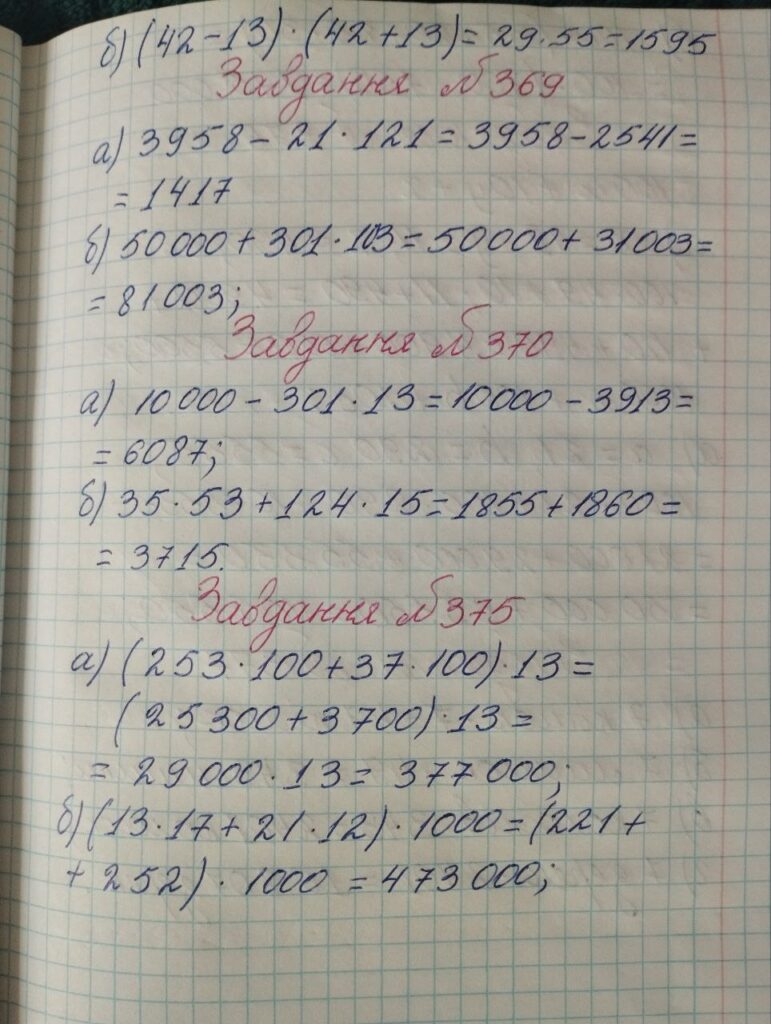 б) (42 - 13) · (42 + 13) = 29 · 55 = 1595
Завдання №369
а) 3958 - 21 · 121 = 3958 - 2541 =
= 1417
б) 50 000 + 301 · 103 = 50000 + 31003 =
= 81 003;
Завдання №370
а) 10 000 - 301 · 13 = 10000 - 3913 =
= 6087;
б) 35 · 53 + 124 · 15 = 1855 + 1860 =
= 3715.
Завдання №375
а) (253 · 100 + 37 · 100) · 13 =
(25 300 + 3 700) · 13 =
= 29 000 · 13 = 377 000;
б) (13 · 17 + 21 · 12) · 1000 = (221 +
+ 252) · 1000 = 473 000;